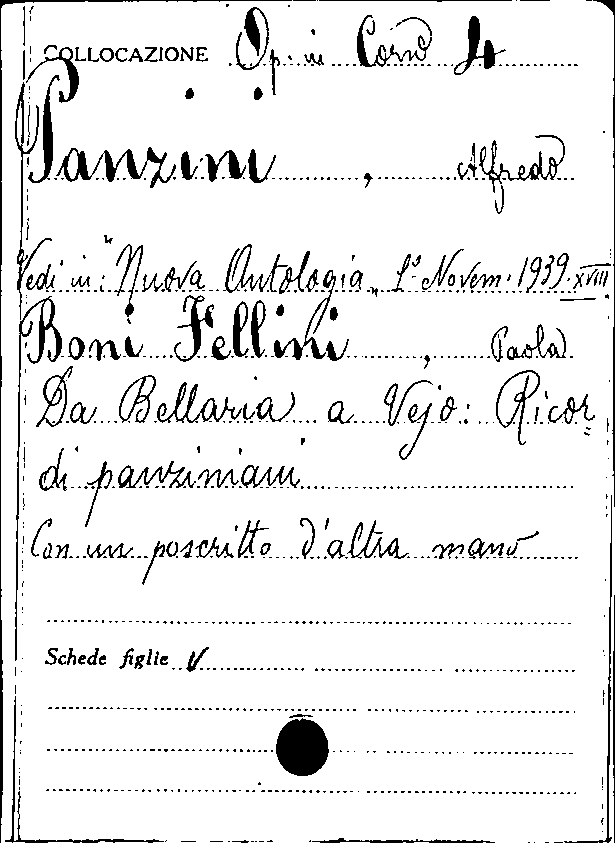 COLLOCAZIONE Op. in Corso 4
Panzini, Alfredo
Vedi in: "Nuova Antologia„ 1º Novem. 1939.XVIII
Boni Fellini, Paola
Da Bellaria a Vejo: Ricor=
di panziniani
Con un poscritto d'altra mano
Schede figlie V